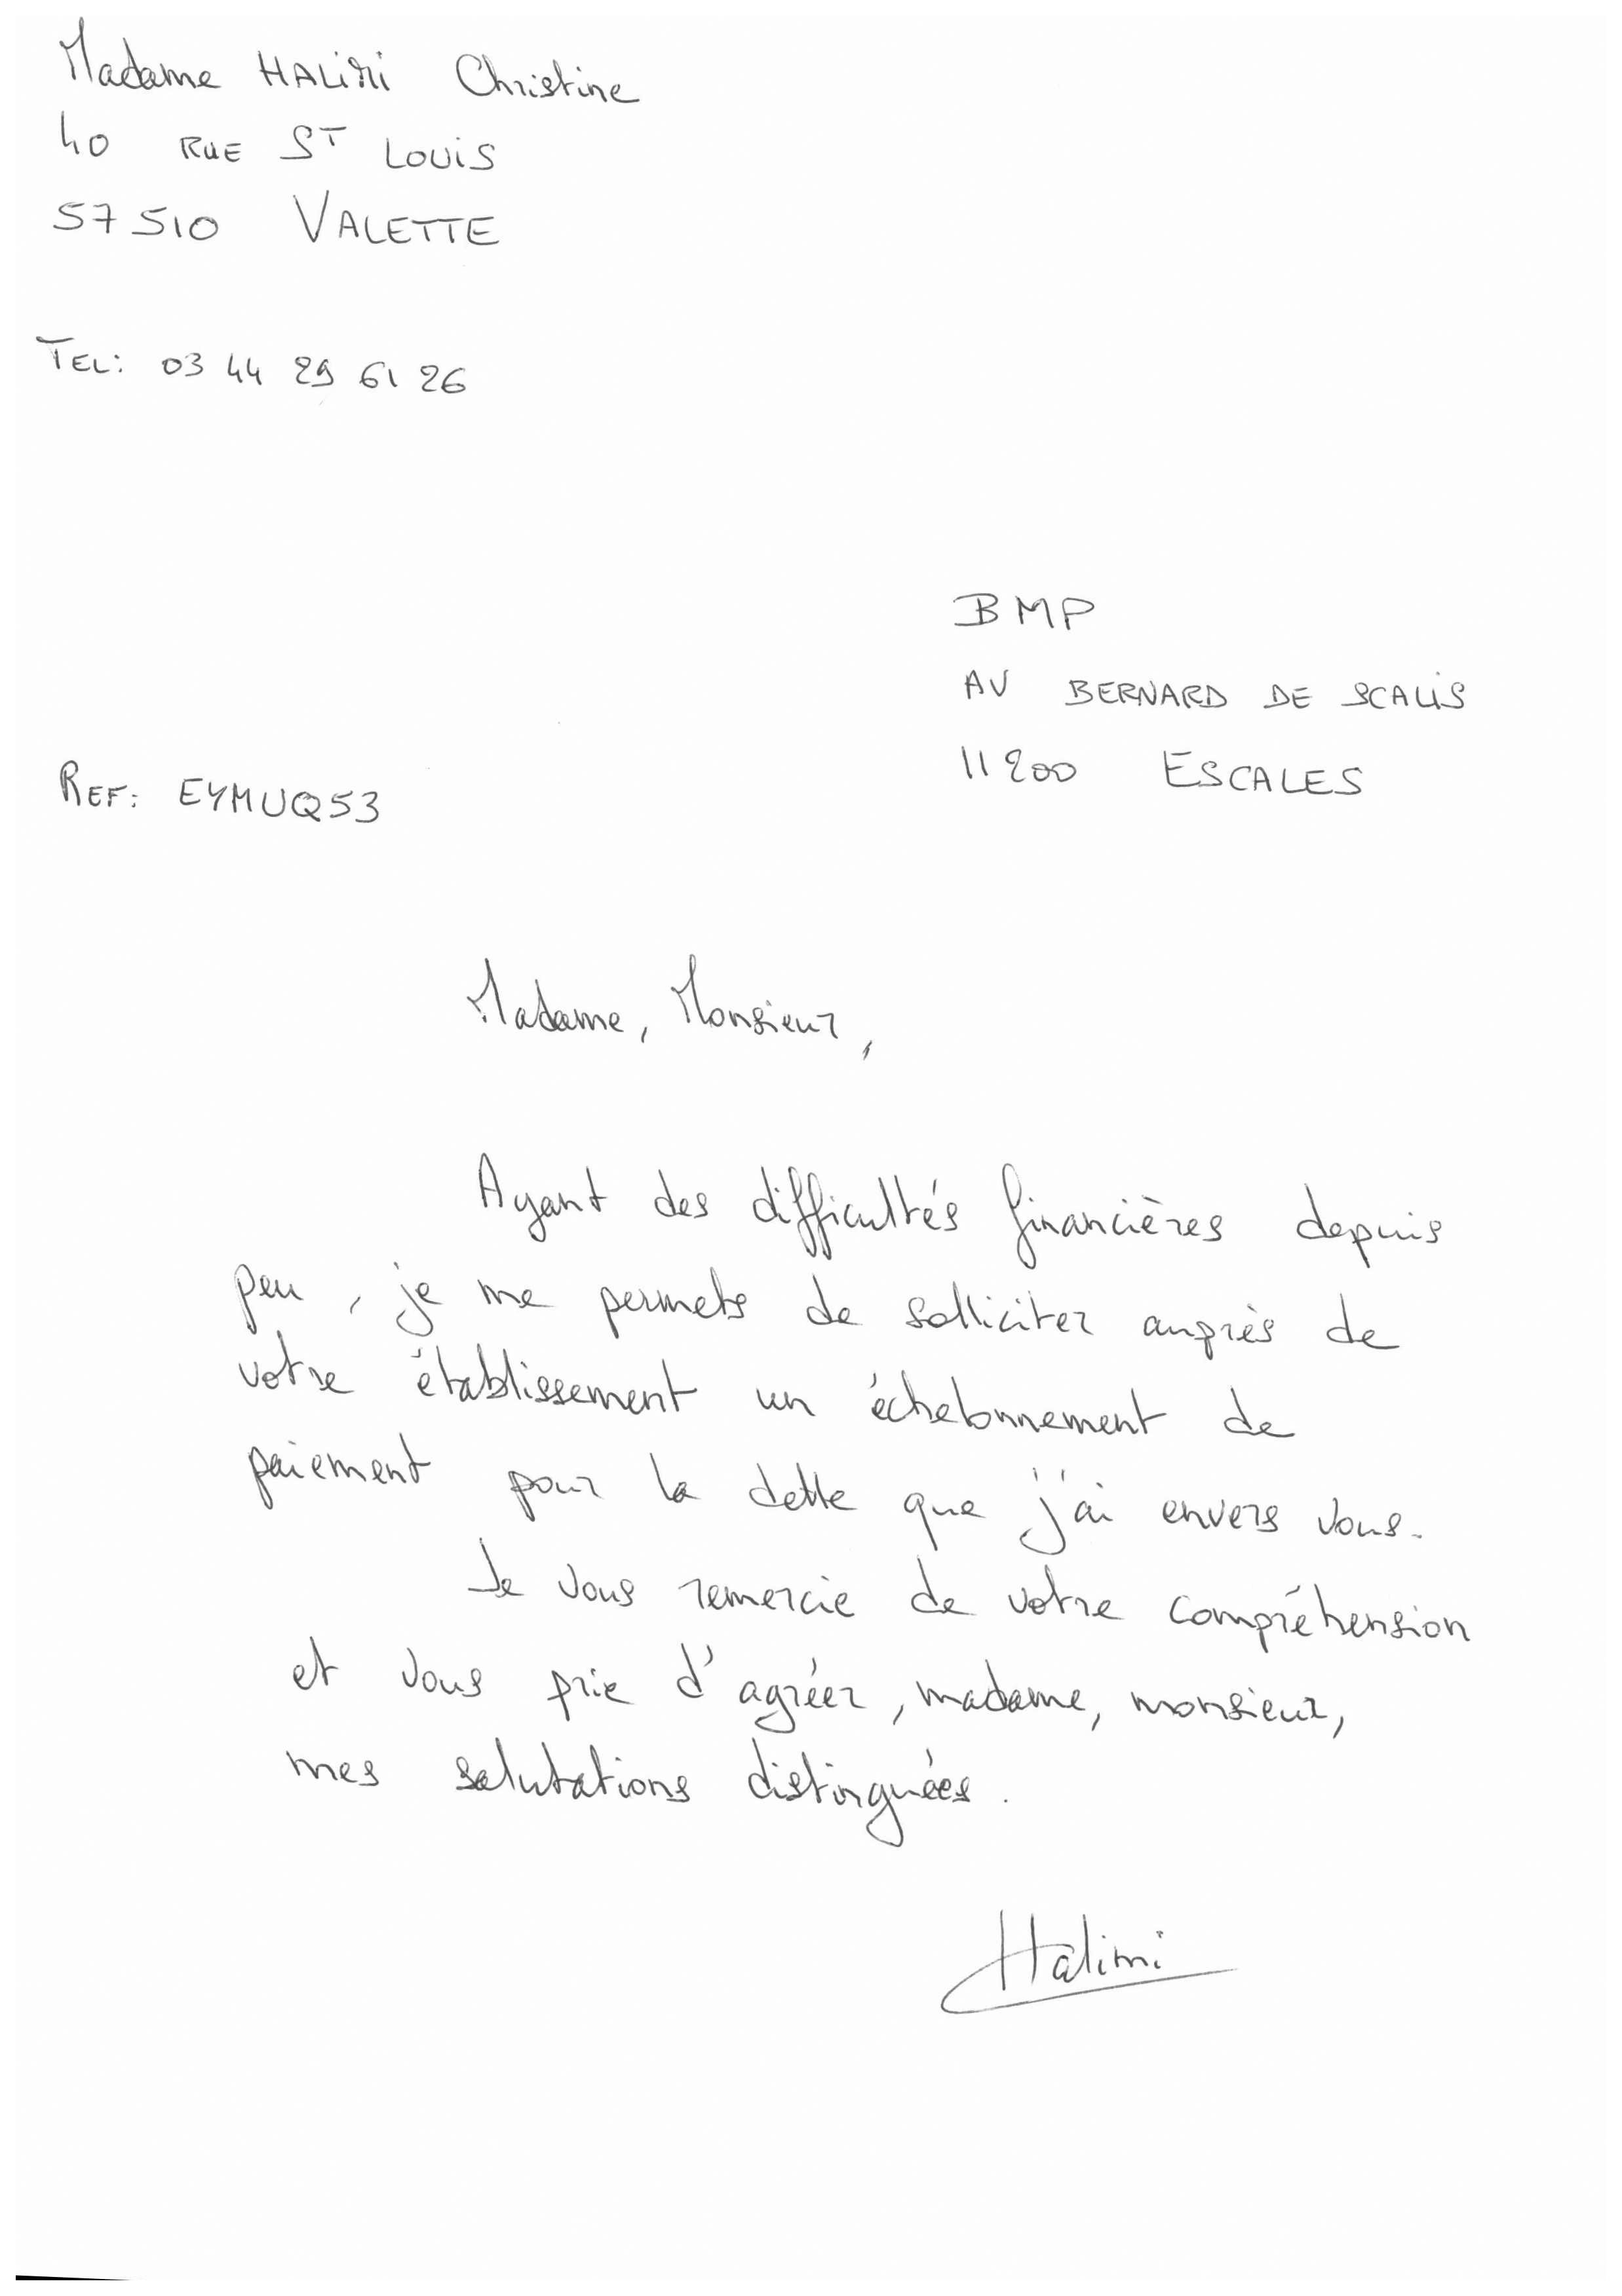 Madame HALIMI Christine
40 RUE ST LOUIS
57510 VALETTE
TEL: 03 44 29 61 26
BMP
AV BERNARD DE SCALIS
11200 ESCALES
REF: EYMUQ53
Madame, Monsieur,
Ayant des difficultés financières depuis
peu, je me permets de solliciter auprès de
votre établissement un échelonnement de
paiement pour la dette que j'ai envers vous.
Je vous remercie de votre compréhension
et vous prie d'agréer, madame, monsieur,
mes salutations distinguées.
Halimi